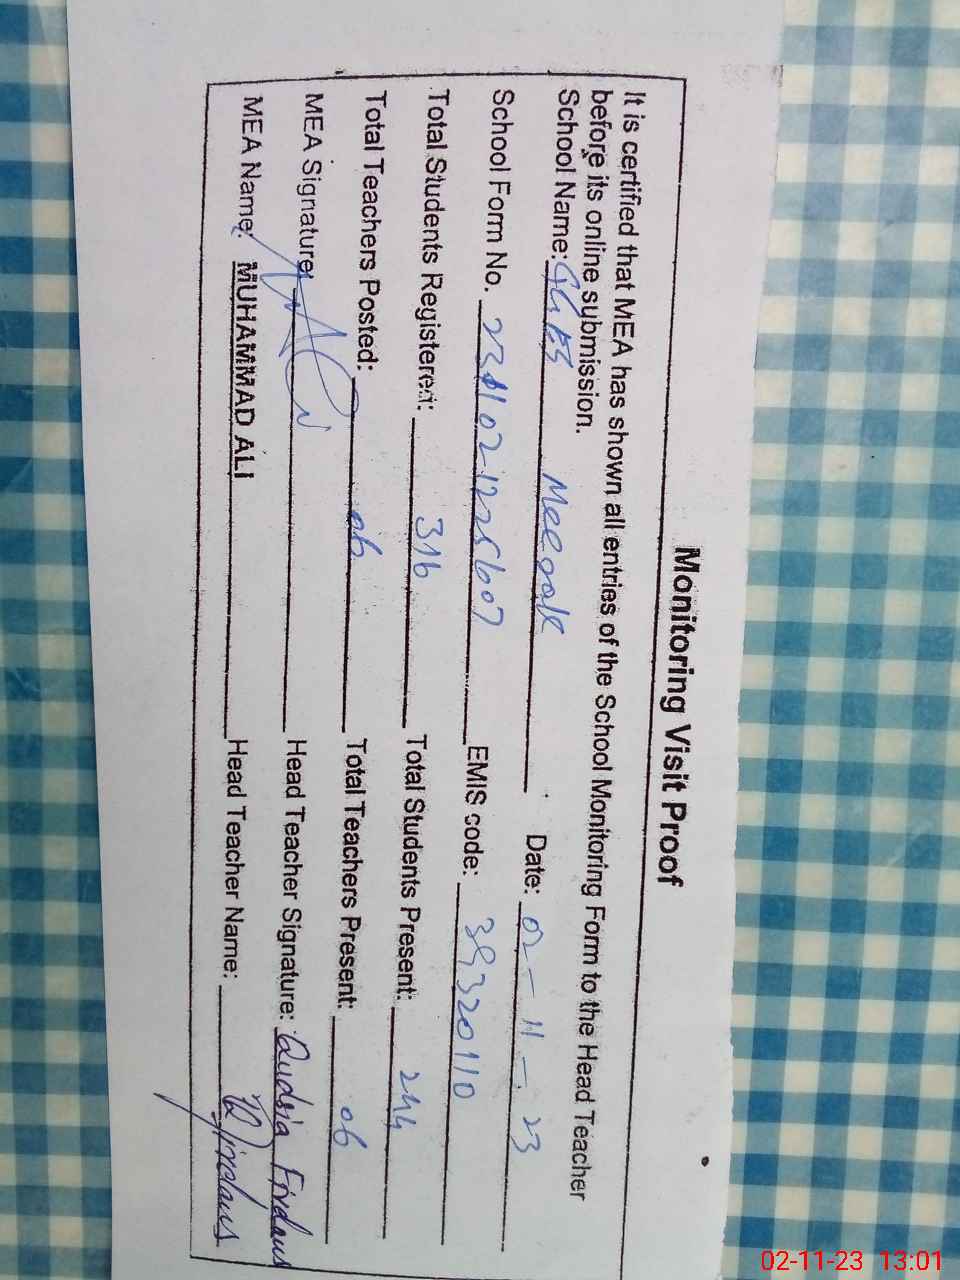 Monitoring Visit Proof
It is certified that MEA has shown all entries of the School Monitoring Form to the Head Teacher
before its online submission.
School Name: Date: 02-11-23
School Form No. EMIS code: 39320110
Total Students Registered: 316 Total Students Present: 244
Total Teachers Posted: 06 Total Teachers Present: 06
MEA Signature: Head Teacher Signature: Qudsia Firdaus
MEA Name: MUHAMMAD ALI Head Teacher Name: Firdaus
02-11-23 13:01